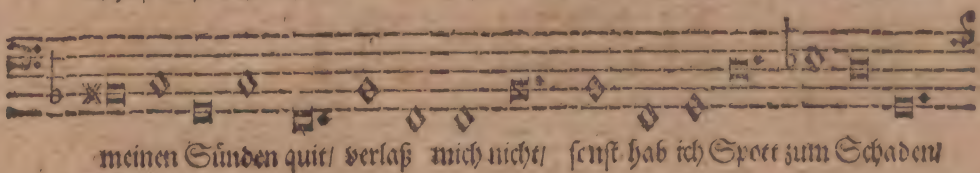 meinen Sünden quit/ verlaß mich nicht/ sonst hab ich Spott zum Schaden/